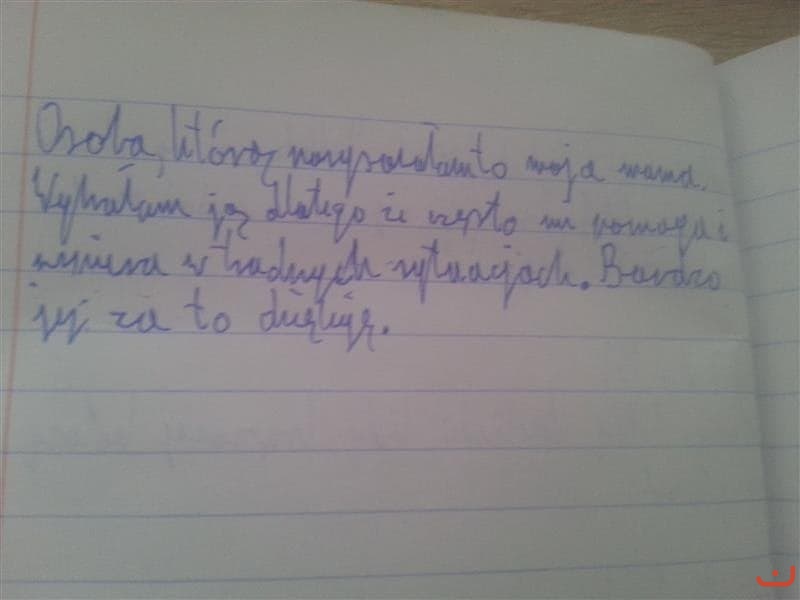 Osoba, którą to moja mama.
Wybrałam ją dlatego że często mi pomaga i
wspiera w trudnych sytuacjach. Bardzo
jej za to dziękuję.